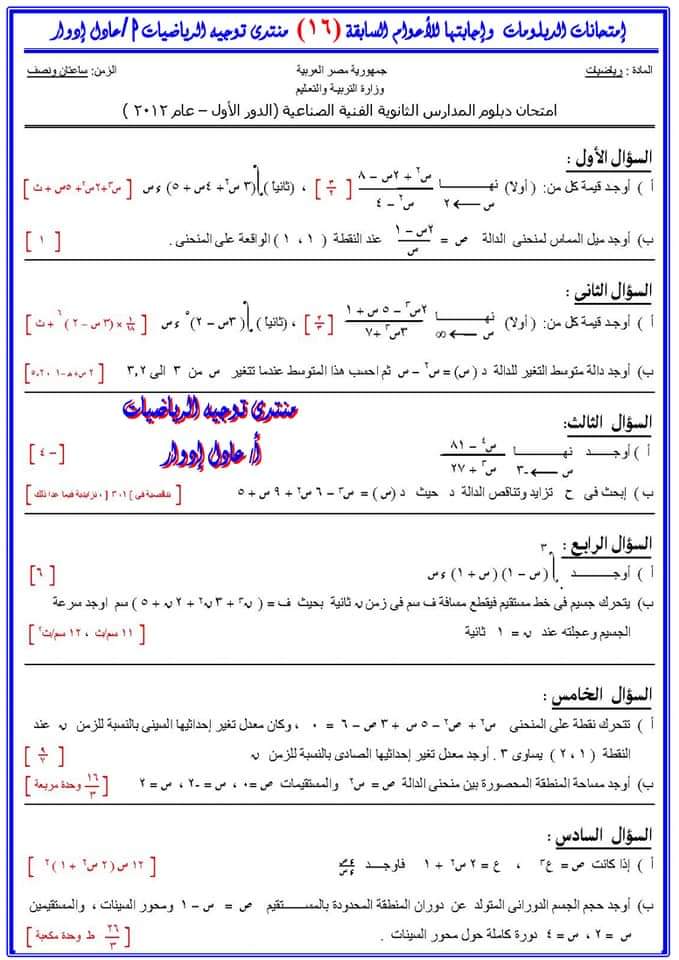 إمتحانات الدبلومات وإجابتها للأعوام السابقة (١٦) منتدى توجيه الرياضيات أ/عادل إدوار
المادة : رياضيات جمهورية مصر العربية الزمن: ساعتان ونصف
وزارة التربية والتعليم
امتحان دبلوم المدارس الثانوية الفنية الصناعية (الدور الأول – عام ٢٠١٢ )
السؤال الأول :
أ ) أوجد قيمة كل من: ( أولا) نهــــا س ← ٢ (س٢ + ٢س – ٨) / (س٢ – ٤) [ ٣/٢ ] ، (ثانياً ) ∫(٣ س٢ + ٤س + ٥) ءس [ س٣+٢س٢+ ٥س + ث ]
ب) أوجد ميل المماس لمنحنى الدالة ص = (٢س – ١) / س عند النقطة ( ١ ، ١ ) الواقعة على المنحنى . [ ١ ]
السؤال الثانى :
أ ) أوجد قيمة كل من: ( أولا) نهــــا س ← ∞ (٢س٣ – ٥ س + ١) / (٣س٣ + ٧) [ ٢/٣ ] ، (ثانياً ) ∫( ٣س – ٢)٥ ءس [ ١/١٨ × (٣ س – ٢ )٦ + ث ]
ب) أوجد دالة متوسط التغير للدالة د (س) = س٢ – س ثم احسب هذا المتوسط عندما تتغير س من ٣ الى ٣,٢ [ ٢ س + ھ – ١ ، ٥,٢ ]
منتدى توجيه الرياضيات
أ/ عادل إدوار
السؤال الثالث:
أ ) أوجــــد نهــــا س ← -٣ (س٤ – ٨١) / (س٣ + ٢٧) [ – ٤ ]
ب ) إبحث فى ح تزايد وتناقص الدالة د حيث د(س) = س٣ – ٦ س٢ + ٩ س + ٥ [ تناقصية فى ] ١ ، ٣ [ ، تزايدية فيما عدا ذلك ]
السؤال الرابع :
أ ) أوجـــــد ٠∫٣ (س – ١) ( س + ١) ءس [ ٦ ]
ب) يتحرك جسيم فى خط مستقيم فيقطع مسافة ف سم فى زمن ن ثانية بحيث ف = ( ن٣ + ٣ ن٢ + ٢ ن + ٥ ) سم اوجد سرعة
الجسيم وعجلته عند ن = ١ ثانية [ ١١ سم/ث ، ١٢ سم/ث٢ ]
السؤال الخامس :
أ ) تتحرك نقطة على المنحنى س٢ + ص٢ – ٥ س + ٣ ص – ٦ = ٠ ، وكان معدل تغير إحداثيها السينى بالنسبة للزمن ن عند
النقطة ( ١ ، ٢ ) يساوى ٣ . أوجد معدل تغير إحداثيها الصادى بالنسبة للزمن ن [ ٩/٧ ]
ب) أوجد مساحة المنطقة المحصورة بين منحنى الدالة ص = س٢ والمستقيمات ص= ٠ ، س = -٢ ، س = ٢ [ ١٦/٣ وحدة مربعة ]
السؤال السادس :
أ ) إذا كانت ص = ع٣ ، ع = ٢ س٢ + ١ فاوجـــد ءص/ءس [ ١٢ س ( ٢ س٢ + ١ )٢ ]
ب) أوجد حجم الجسم الدورانى المتولد عن دوران المنطقة المحدودة بالمســـتقيم ص = س – ١ ومحور السينات ، والمستقيمين
س = ٢ ، س = ٤ دورة كاملة حول محور السينات . [ ٢٦/٣ ط وحدة مكعبة ]